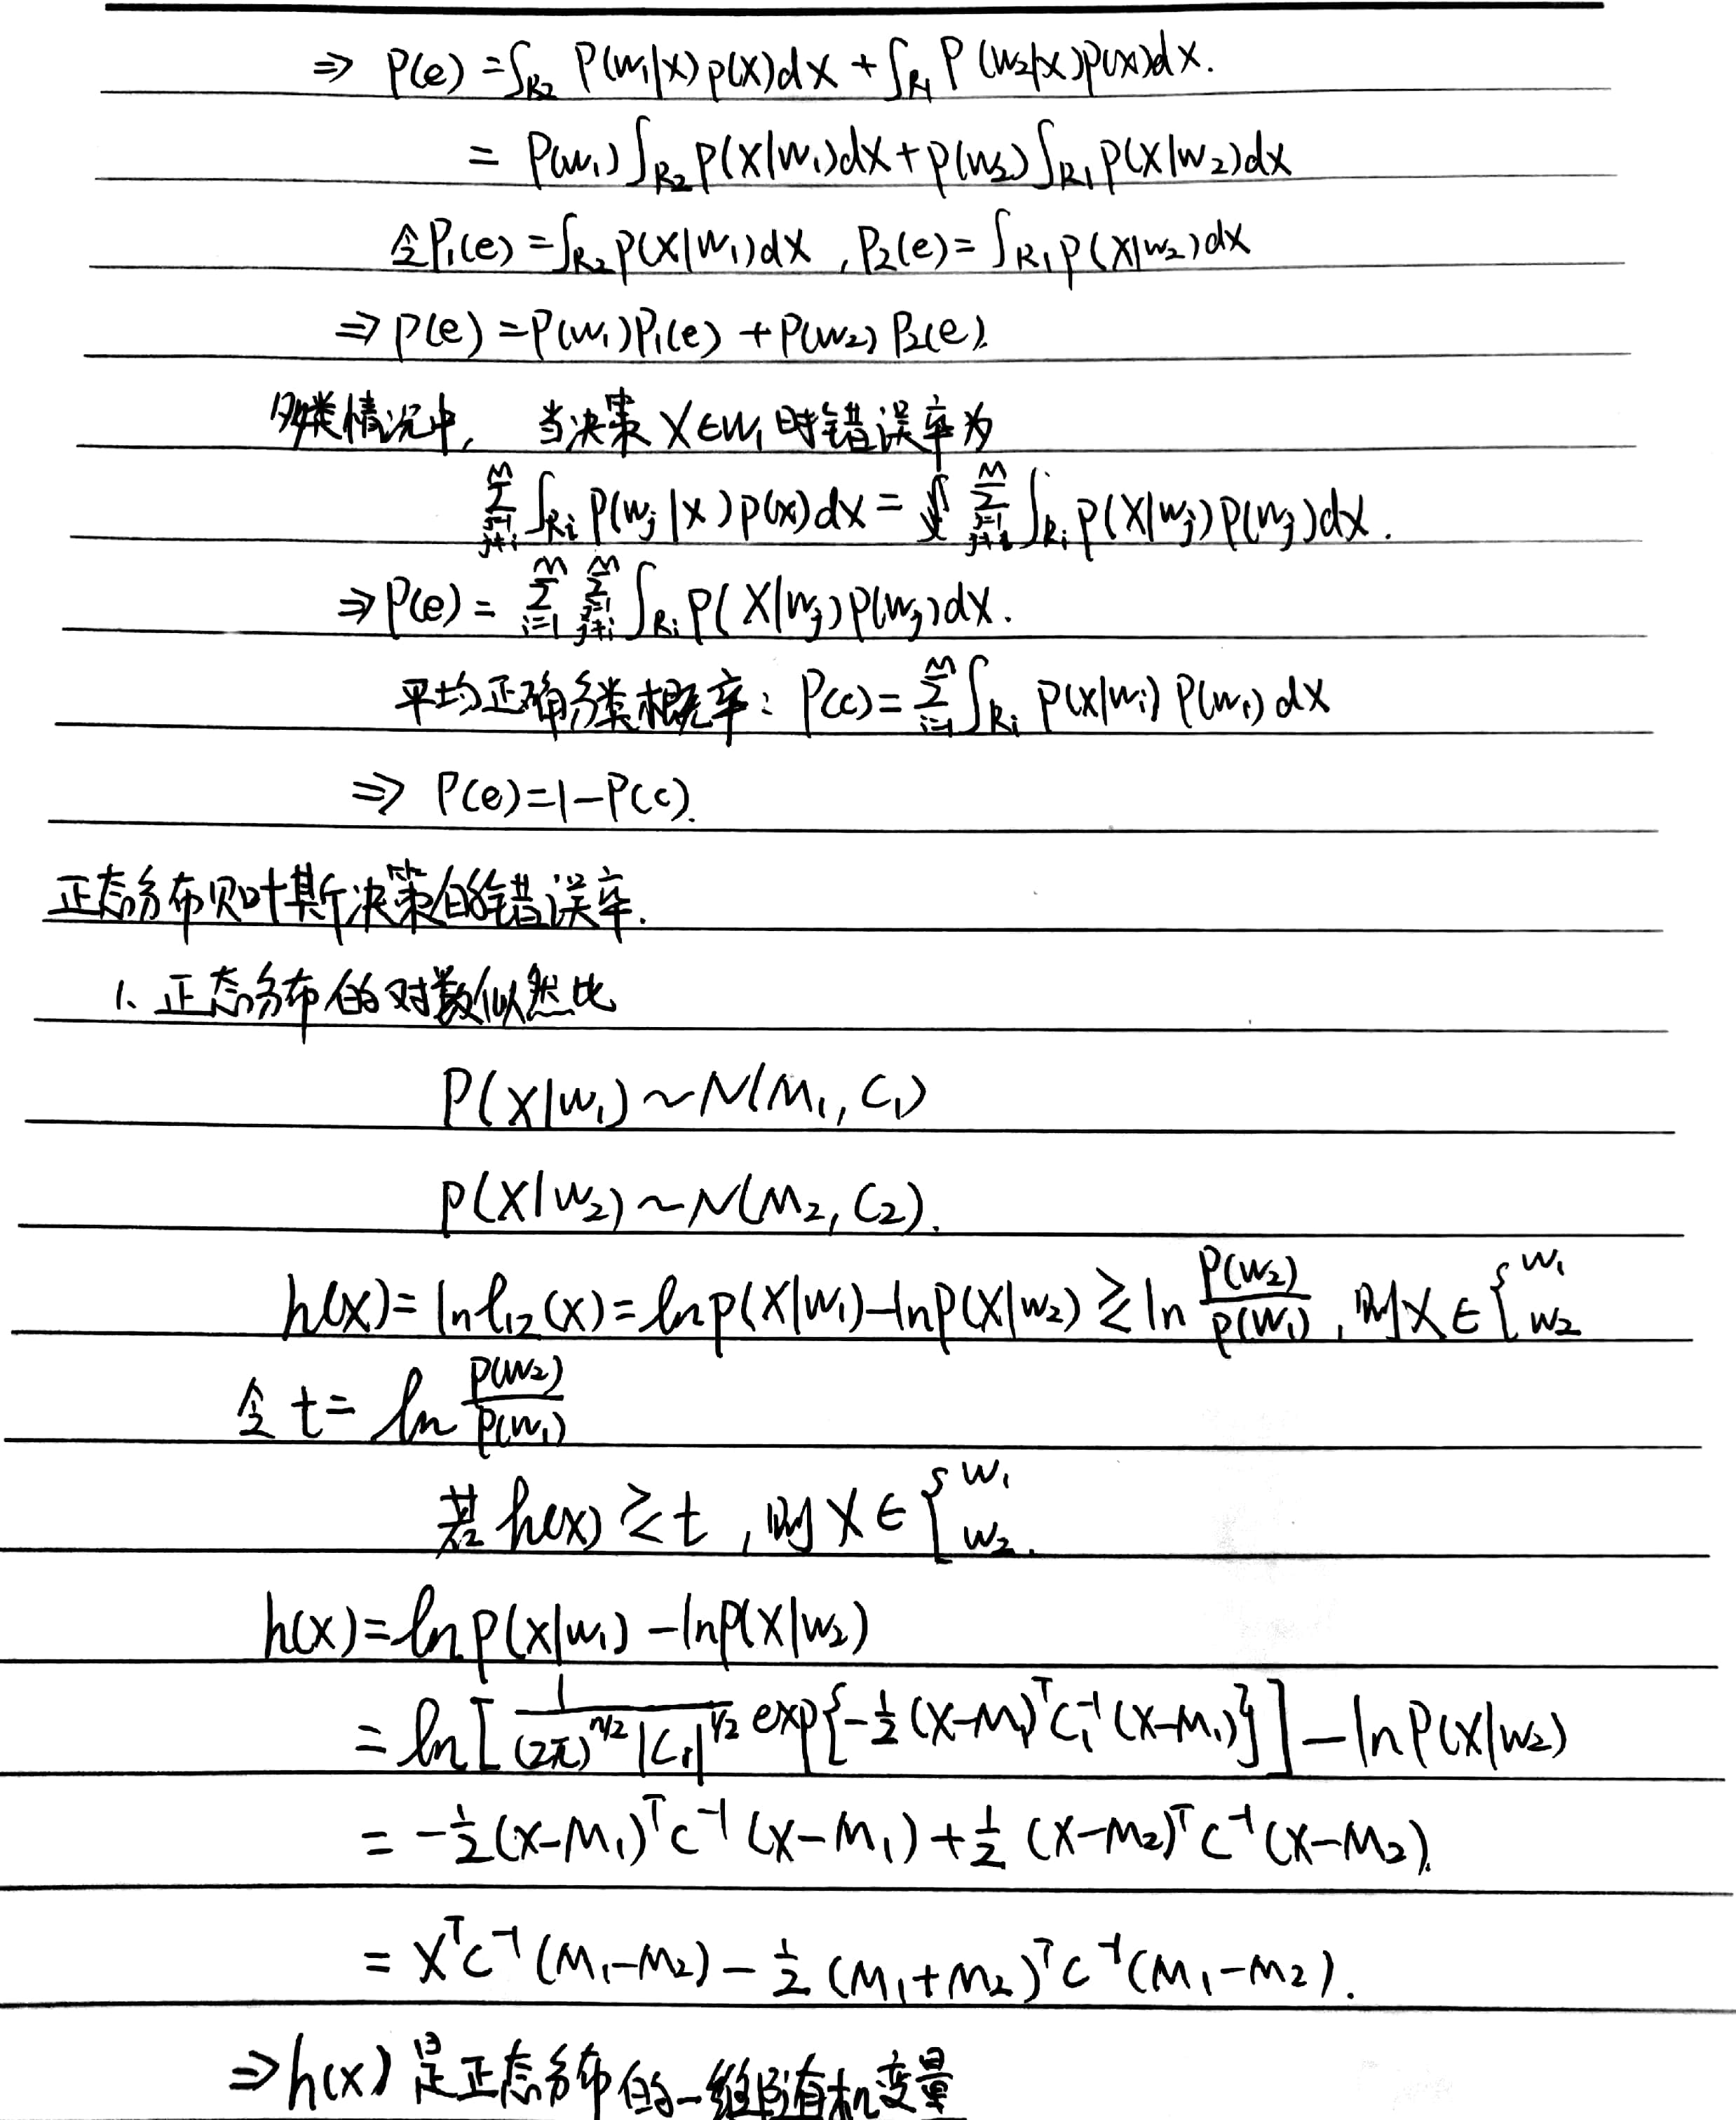 ⇒ P(e) = ∫_{R2} P(w₁|x) p(x)dx + ∫_{R1} P(w₂|x)p(x)dx.
= P(w₁)∫_{R2} p(X|w₁)dX + p(w₂)∫_{R1} p(X|w₂)dX
令P₁(e) = ∫_{R2} p(X|w₁)dX , P₂(e) = ∫_{R1} p(X|w₂)dX
⇒ P(e) = P(w₁)P₁(e) + P(w₂)P₂(e).
多类情况中, 当决策X∈W₁时错误率为
∑_{j=1, j≠i}^{M} ∫_{Ri} P(w_j|x) p(x) dx = ∑_{j=1, j≠i}^{M} ∫_{Ri} p(X|w_j)P(w_j)dx.
⇒ P(e) = ∑_{i=1}^{M} ∑_{j=1, j≠i}^{M} ∫_{Ri} p(X|w_j)p(w_j)dx.
平均正确分类概率: P(c) = ∑_{i=1}^{M} ∫_{Ri} p(x|w_i) P(w_i) dx
⇒ P(e)=1-P(c).
正态分布贝叶斯决策的错误率.
1、正态分布的对数似然比
P(X|w₁) ~ N(M₁, C₁)
p(X|w₂) ~ N(M₂, C₂).
h(x) = ln l₁₂(x) = ln p(X|w₁) - ln p(X|w₂) ≷ ln P(w₂)/P(w₁) , 则X∈{w₁ w₂
令 t = ln P(w₂)/P(w₁)
若 h(x) ≷ t , 则 X∈{w₁ w₂.
h(x) = ln p(x|w₁) - ln p(X|w₂)
= ln[ 1/((2π)^{n/2} |C₁|^{1/2}) exp{-½ (X-M₁)ᵀ C₁⁻¹ (X-M₁)} ] - ln P(X|w₂)
= -½(x-M₁)ᵀC⁻¹(x-M₁) + ½ (X-M₂)ᵀC⁻¹(X-M₂).
= XᵀC⁻¹(M₁-M₂) - ½ (M₁+M₂)ᵀC⁻¹(M₁-M₂).
⇒ h(x) 是正态分布的一维随机变量